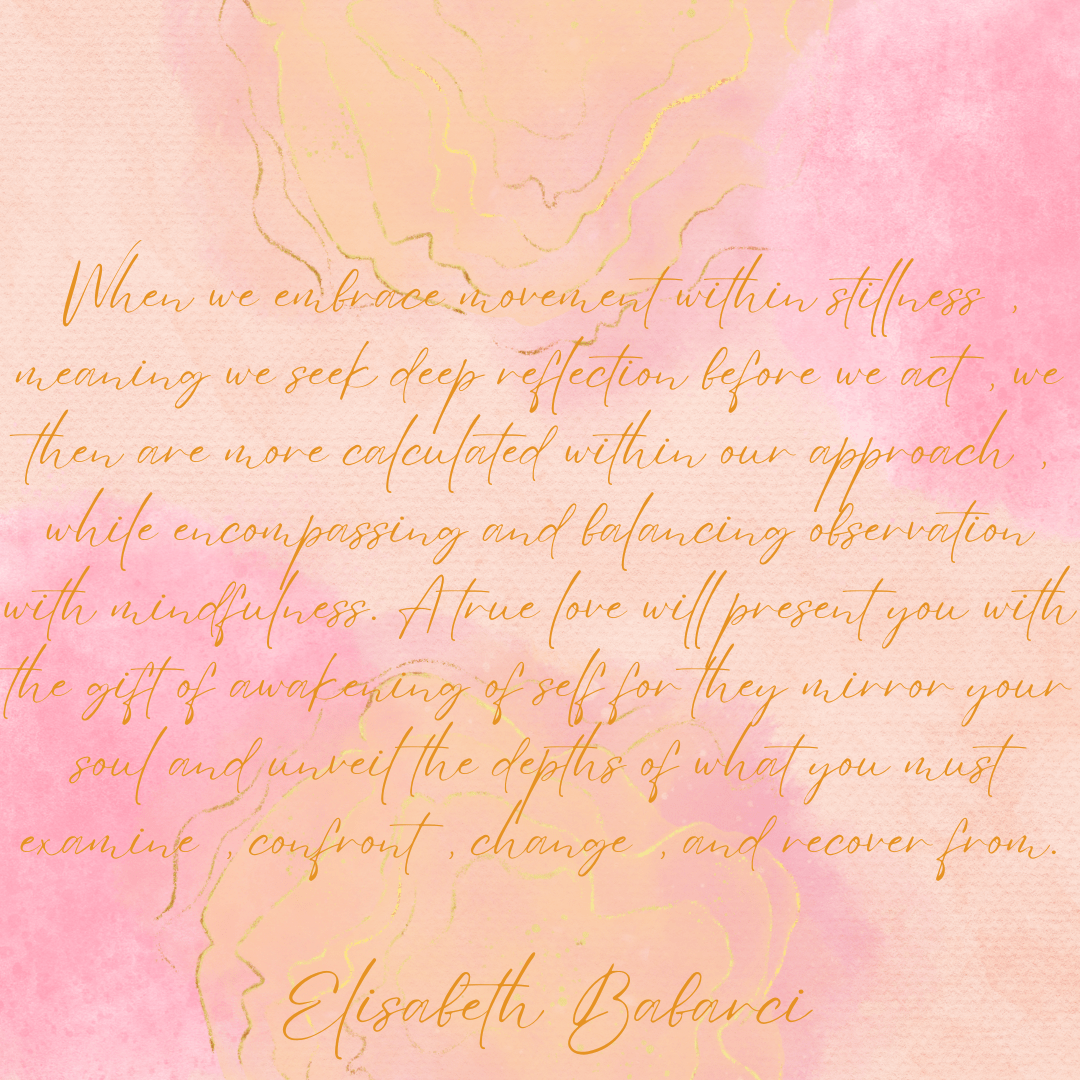 When we embrace movement within stillness ,
meaning we seek deep reflection before we act , we
then are more calculated within our approach ,
while encompassing and balancing observation
with mindfulness. A true love will present you with
the gift of awakening of self for they mirror your
soul and unveil the depths of what you must
examine , confront , change , and recover from.
Elisabeth Babarci